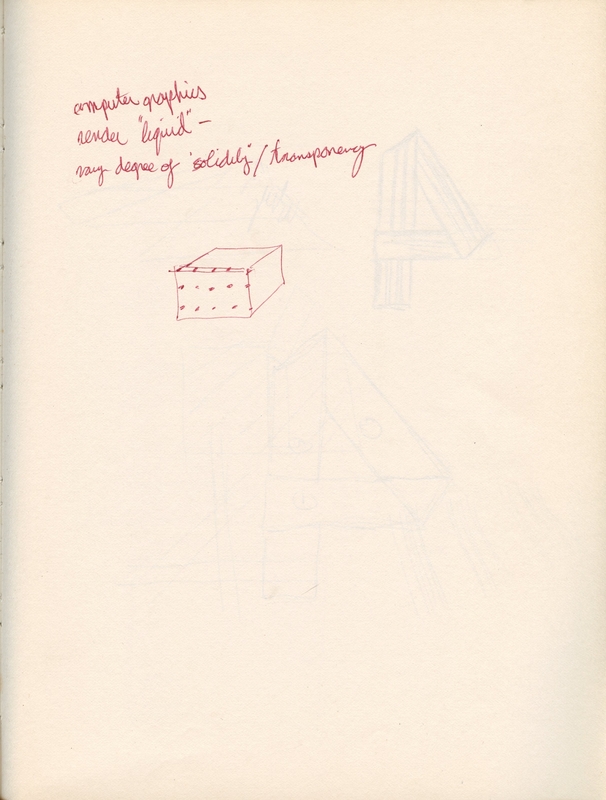 computer graphics
render "liquid" —
vary degree of "solidity" / transparency